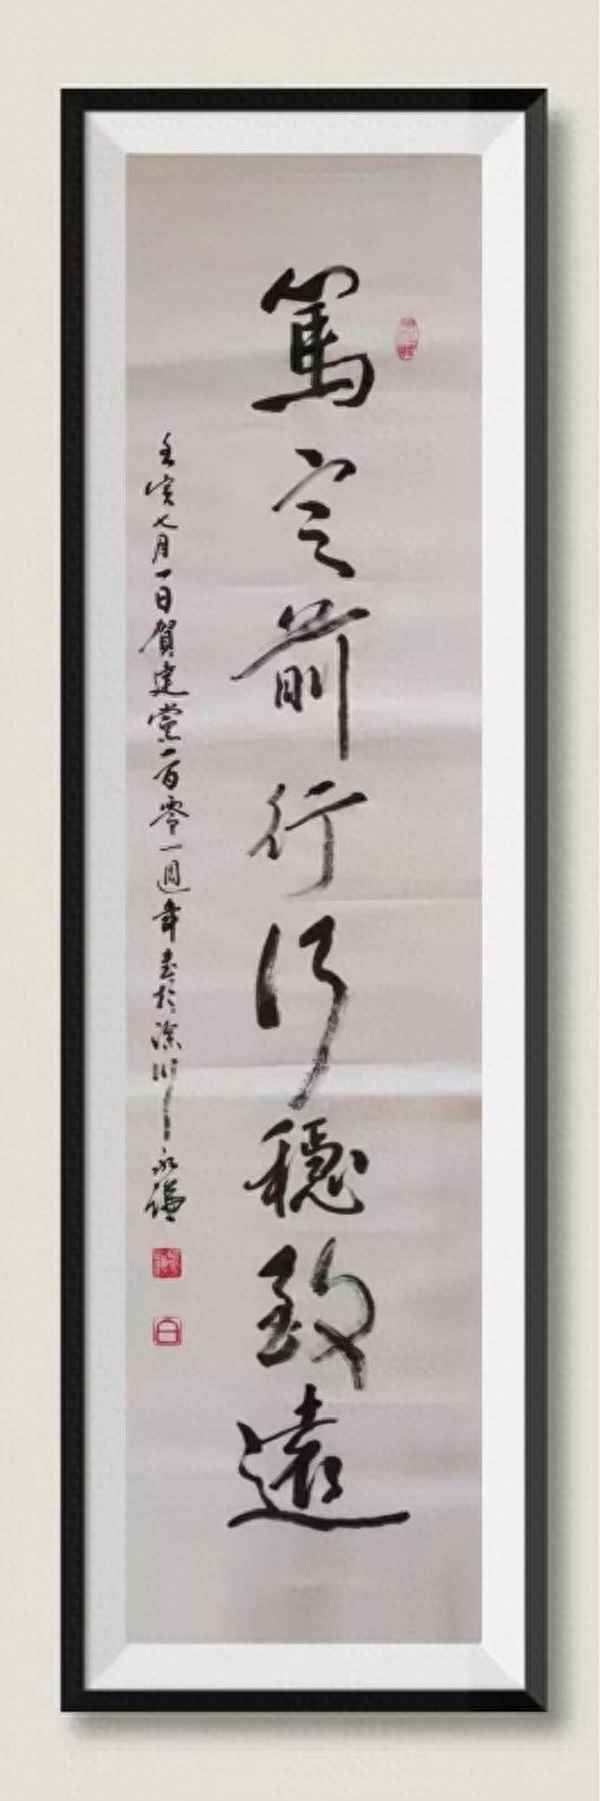 篤定前行行穩致遠
壬寅七月一日賀建黨一百零一週年書於深圳永謙